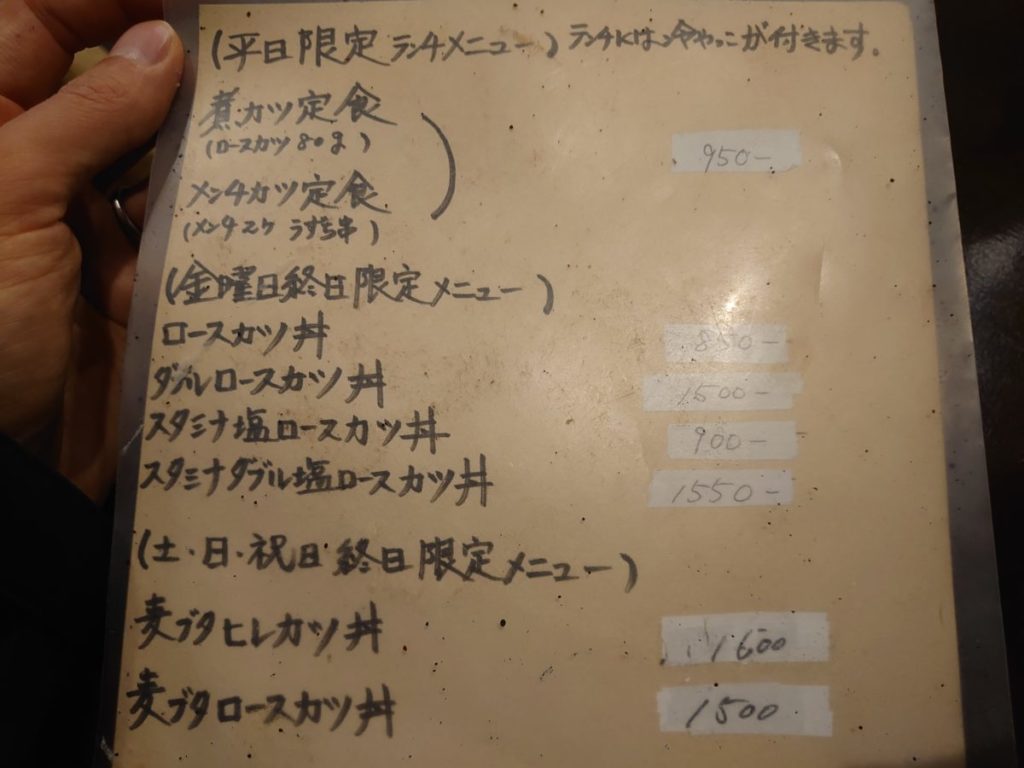 (平日限定ランチメニュー) ランチには冷やっこが付きます。
煮カツ定食
(ロースカツ80g)
950-
メンチカツ定食
(メンチ2ケ うずら串)
(金曜日終日限定メニュー)
ロースカツ丼 850-
ダブルロースカツ丼 1500-
スタミナ塩ロースカツ丼 900-
スタミナダブル塩ロースカツ丼 1550-
(土・日・祝日終日限定メニュー)
麦ブタヒレカツ丼 1600
麦ブタロースカツ丼 1500